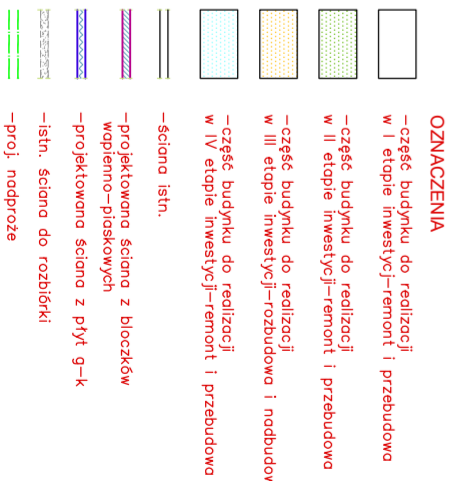 OZNACZENIA
-część budynku do realizacji
w I etapie inwestycj-remont i przebudowa
-część budynku do realizacji
w II etapie inwestycji-remont i przebudowa
-część budynku do realizacji
w III etapie inwestycji-rozbudowa i nadbudow
-część budynku do realizacji
w IV etapie inwestycji-remont i przebudowa
-ściana istn.
-projektowana ściana z bloczków
wapienno-piaskowych
-projektowana ściana z płyt g-k
-istn. ściana do rozbiórki
-proj. nadproże